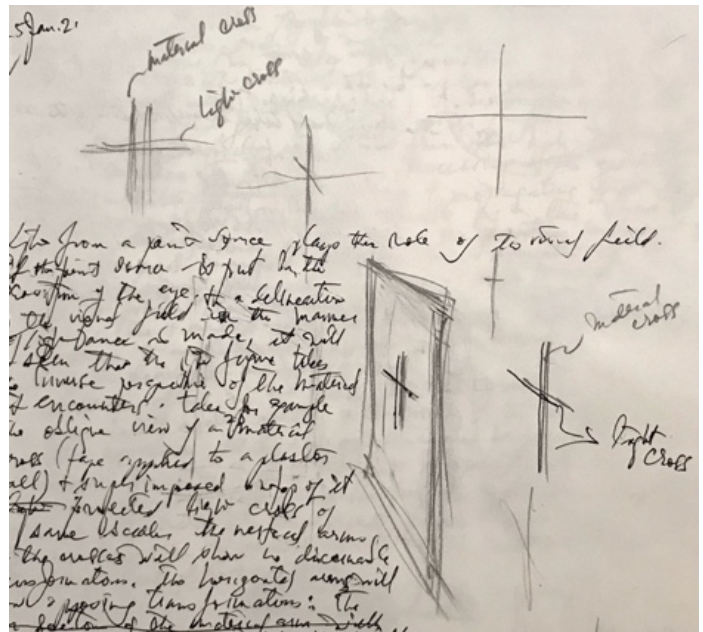 5 Jan. 2
material cross
light cross
from a point source plays the role of the visual field.
point source is put in the
of the eye, a delineation
the visual field in the manner
is made, it will
seen that the figure takes
inverse perspective of the material
it encounters. Take for example
oblique view of a material
cross (tape applied to a plaster
wall) & superimposed ontop of it
projected light cross of
same scale. The vertical arms
the crosses will show no discernable
transformations. The horizontal arms will
opposing transformations: The
of the material arm
material
cross
light
cross